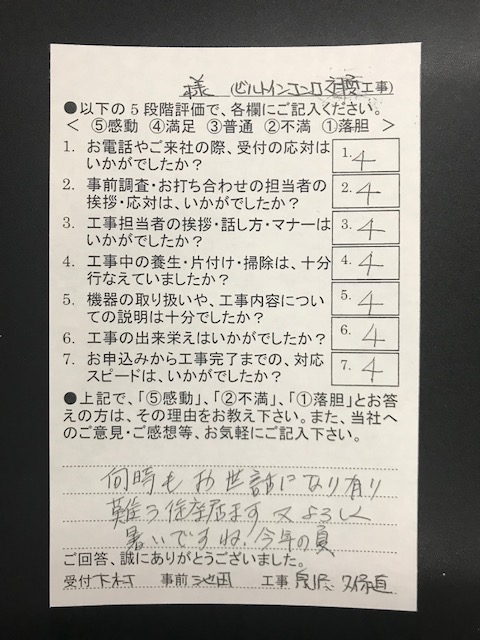 様 (ビルトインコンロ 工事)
●以下の5段階評価で、各欄にご記入ください。
< ⑤感動 ④満足 ③普通 ②不満 ①落胆 >
1. お電話やご来社の際、受付の応対は
いかがでしたか? 1. 4
2. 事前調査・お打ち合わせの担当者の
挨拶・応対は、いかがでしたか? 2. 4
3. 工事担当者の挨拶・話し方・マナーは
いかがでしたか? 3. 4
4. 工事中の養生・片付け・掃除は、十分
行なえていましたか? 4. 4
5. 機器の取り扱いや、工事内容につい
ての説明は十分でしたか? 5. 4
6. 工事の出来栄えはいかがでしたか? 6. 4
7. お申込みから工事完了までの、対応
スピードは、いかがでしたか? 7. 4
●上記で、「⑤感動」、「②不満」、「①落胆」とお答
えの方は、その理由をお教え下さい。また、当社へ
のご意見・ご感想等、お気軽にご記入下さい。
何時もお世話になり有り
難う御座居ます 又よろしく
暑いですね!今年の夏
ご回答、誠にありがとうございました。
受付 下村 事前 池田 工事